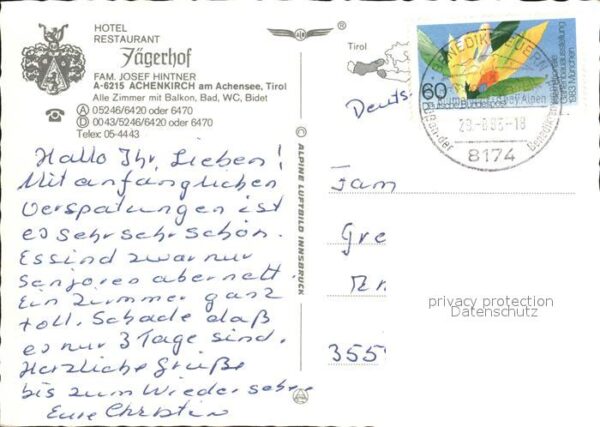 HOTEL
RESTAURANT
Jägerhof
FAM. JOSEF HINTNER
A-6215 ACHENKIRCH am Achensee, Tirol
Alle Zimmer mit Balkon, Bad, WC, Bidet
☎ Ⓐ 05246/6420 oder 6470
Ⓓ 0043/5246/6420 oder 6470
Telex: 05-4443
Hallo Ihr Lieben!
Mit anfänglichen
Verspätungen ist
es sehr sehr schön.
Es sind zwar nur
Senioren aber nett.
Ein Zimmer ganz
toll. Schade daß
es nur 3 Tage sind.
Herzliche Grüße
bis zum Wiedersehen
Eure Christin
© ALPINE LUFTBILD INNSBRUCK
®
Tirol
Deuts
60
1983 München
8174
Fam
Gre
355
privacy protection
Datenschutz